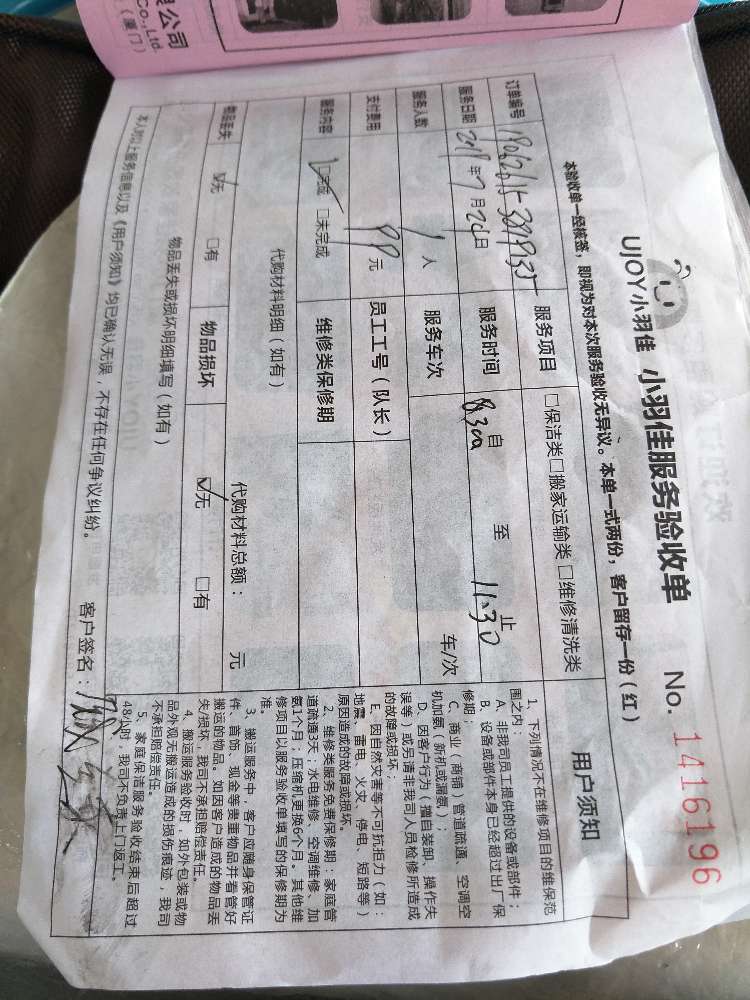 限公司
Co.,Ltd.
（澳门）
UJOY小羽佳 小羽佳服务验收单 No. 1416196
本验收单一经核签，即视为对本次服务验收无异议。本单一式两份，客户留存一份（红）
订单编号 服务项目 □保洁类□搬家运输类□维修清洗类
服务日期 年7月26日 服务时间 自 8:30 至 11:30 止
服务人数 1人 服务车次 车/次
支付费用 99元 员工工号（队长）
服务内容 ☑完成 □未完成 维修类保修期
代购材料明细（如有） 代购材料总额： 元
物品丢失 ☑无 □有 物品损坏 ☑无 □有
物品丢失或损坏明细填写（如有）
本人对以上服务信息以及《用户须知》均已确认无误，不存在任何争议纠纷。 客户签名：
用户须知
1、下列情况不在维修项目的维保范
围之内：
A、非我司员工提供的设备或部件；
B、设备或部件本身已经超过出厂保
修期；
C、商业（商铺）管道疏通、空调空
机加氨（新机或漏氨）；
D、因客户行为，擅自装卸、操作失
误等）或另请非我司人员检修所造成
的故障或损坏；
E、因自然灾害等不可抗拒力（如：
地震、雷电、火灾、停电、短路等）
原因造成的故障或损坏。
2、维修类服务免费保修期：家庭管
道疏通3天；水电维修、空调维修、加
氨1个月；压缩机更换6个月。其他维
修项目以服务验收单填写的保修期为
准。
3、搬运服务中，客户应随身保管证
件、首饰、现金等贵重物品并看管好
搬运的物品。如因客户造成的物品丢
失/损坏，我司不承担赔偿责任。
4、搬运服务验收时，如外包装或物
品外观无搬运造成的损伤痕迹，我司
不承担赔偿责任。
5、家庭保洁服务验收结束后超过
48小时，我司不负责上门返工。